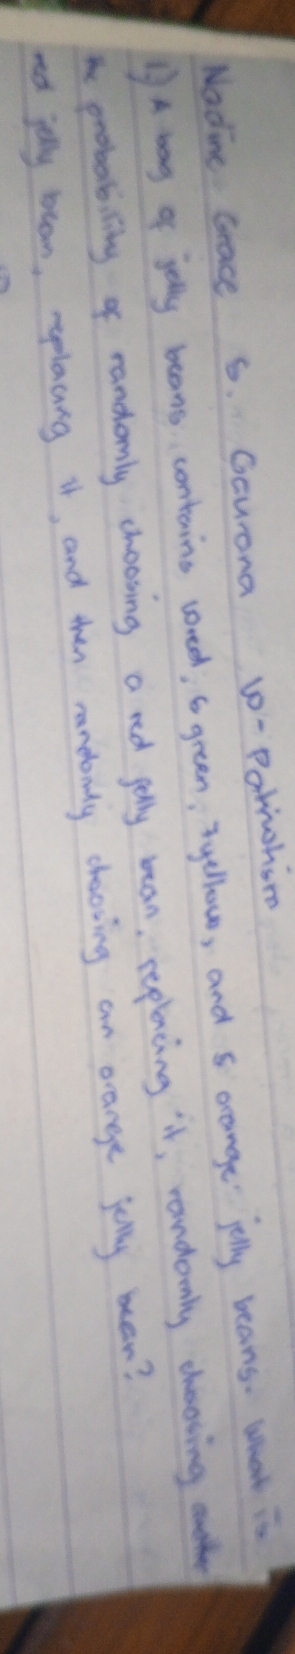 Nadine Grace S. Gaurana 10-Patriotism
1.) A bag of jelly beans contains 10 red, 6 green, 7 yellow, and 5 orange jelly beans. What is
the probability of randomly choosing a red jelly bean, replacing it, randomly choosing another
red jelly bean, replacing it, and then randomly choosing an orange jelly bean?